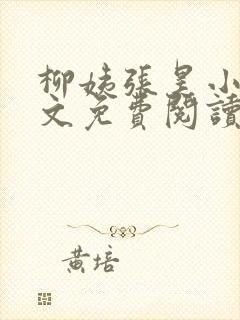 柳姨張昊小
文免費閱讀
黃培